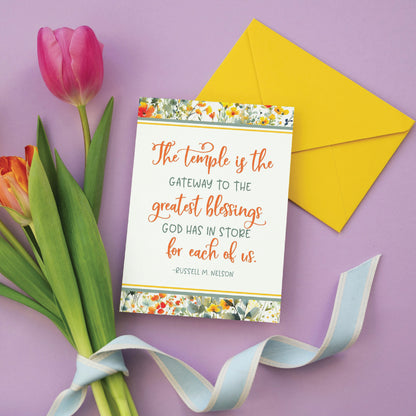 The temple is the
GATEWAY TO THE
greatest blessings
GOD HAS IN STORE
for each of us.
-RUSSELL M. NELSON